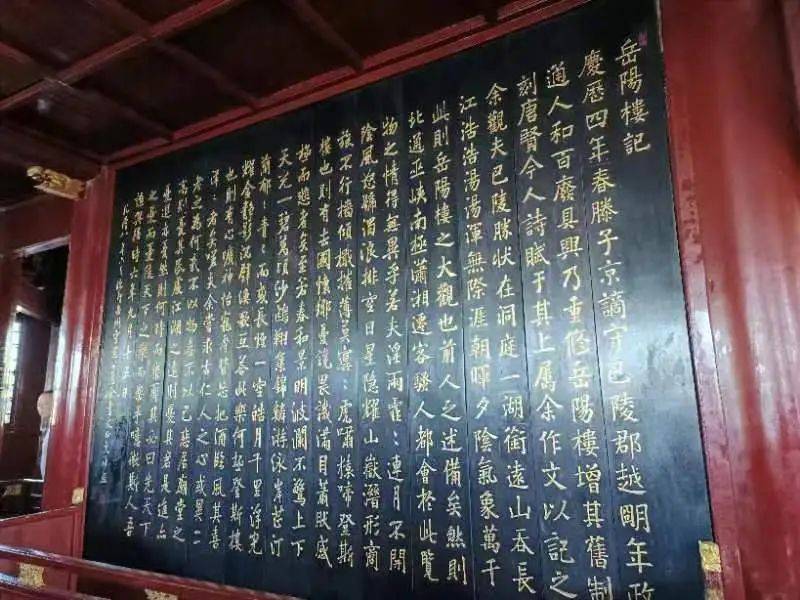 岳陽樓記
慶曆四年春滕子京謫守巴陵郡越明年政
通人和百廢具興乃重修岳陽樓增其舊制
刻唐賢今人詩賦于其上屬余作文以記之
余觀夫巴陵勝狀在洞庭一湖銜遠山吞長
江浩浩湯湯渾無際涯朝暉夕陰氣象萬千
此則岳陽樓之大觀也前人之述備矣然則
北通巫峽南極瀟湘遷客騷人都會於此覽
物之情得無異乎若夫淫雨霏：連月不開
陰風怒號濁浪排空日星隱耀山嶽潛形商
旅不行檣傾楫摧薄暮冥：虎嘯猿啼登斯
樓也則有去國懷鄉憂讒畏譏滿目蕭然感
極而悲者矣至若春和景明波瀾不驚上下
天光一碧萬頃沙鷗翔集錦鱗游泳岸芷汀
蘭郁：青：而或長煙一空皓月千里浮光
耀金靜影沉璧漁歌互答此樂何極登斯樓
也則有心曠神怡寵辱皆忘把酒臨風其喜
洋：者矣嗟夫余嘗求古仁人之心或異二
者之為何哉不以物喜不以己悲居廟堂之
高則憂其民處江湖之遠則憂其君是進亦
憂退亦憂然則何時而樂耶其必曰先天下
之憂而憂後天下之樂而樂乎噫微斯人吾
誰與歸時六年九月十五日